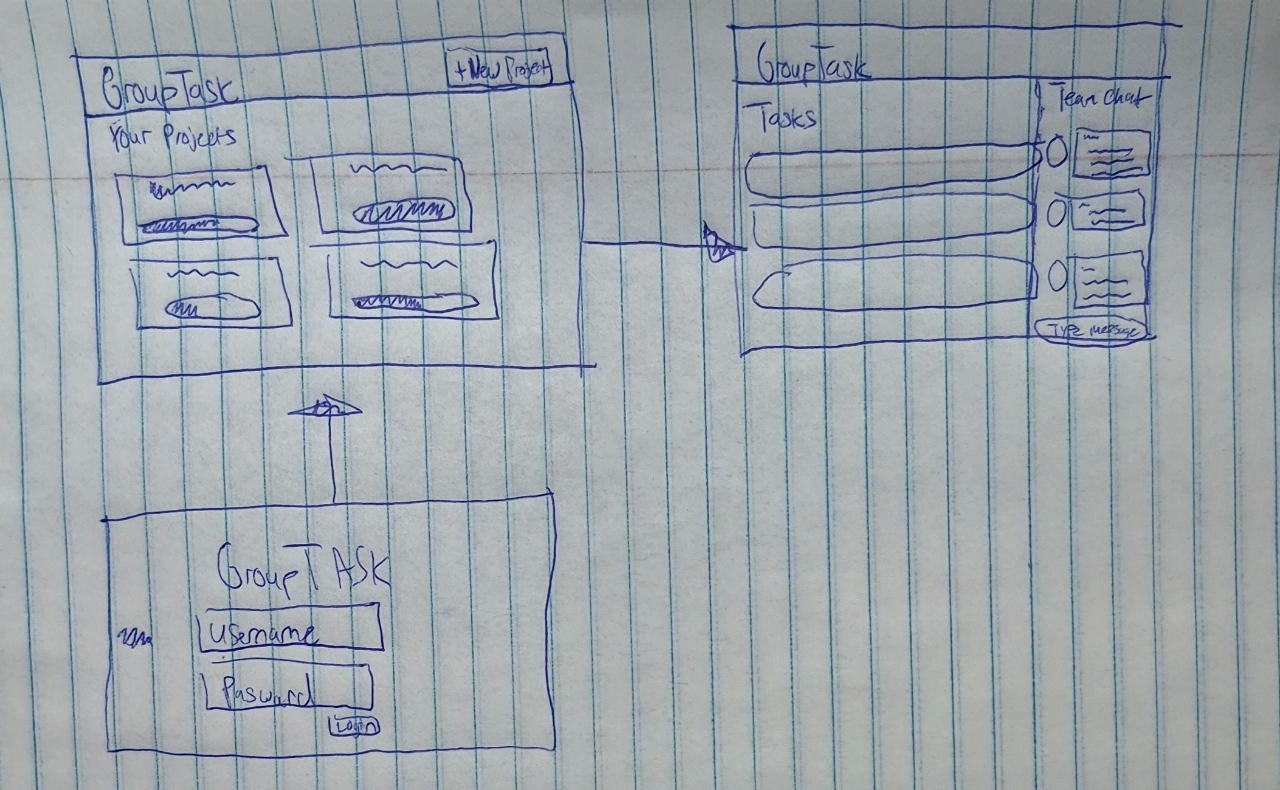 GroupTask
+New Project
Your Projects
GroupTask
Tasks
Team Chat
Type message
GroupTASK
Username
Pasword
Login